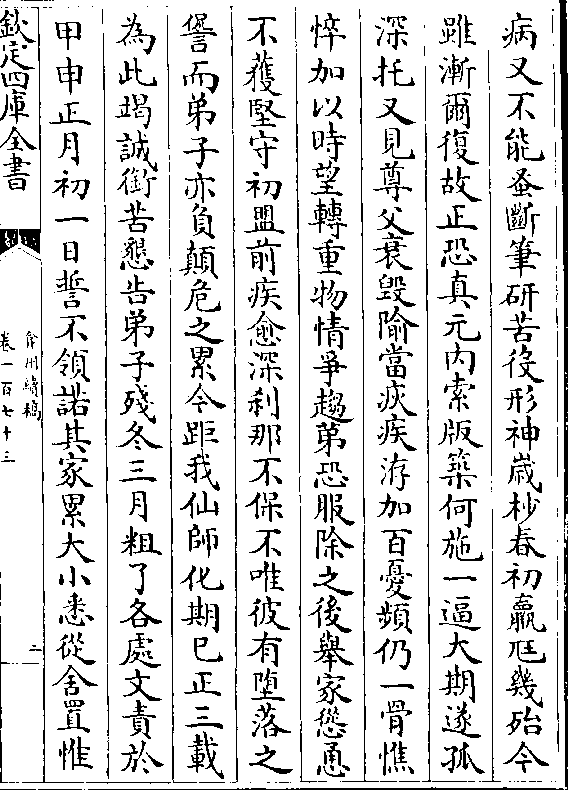 病又不能蚤斷筆硏苦役形神嵗杪春初羸尫幾殆今
雖漸爾復故正恐真元内索版築何施一逼大期遂孤
深托又見尊父衰毁隃當疢疾洊加百憂頻仍一骨憔
悴加以時望轉重物情爭趨第恐服除之後舉家慫恿
不獲堅守初盟前疾愈深刹那不保不唯彼有堕落之
諐而弟子亦負顛危之累今距我仙師化期巳正三載
為此竭誠銜苦懇告弟子殘冬三月粗了各處文責於
甲申正月初一日誓不領諾其家累大小悉從舍置惟
欽定四庫全書
弇州續稿
卷一百七十三
二